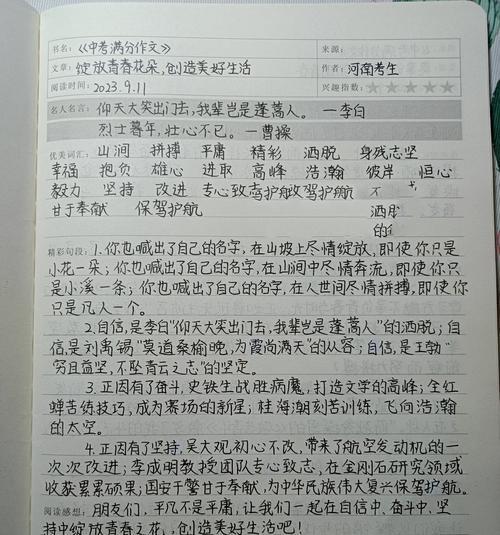 书名：《中考满分作文》 来源：
文章：绽放青春花朵，创造美好生活 作者：河南考生
阅读时间：2023.9.11 兴趣指数：★★★★★
名人名言：仰天大笑出门去，我辈岂是蓬蒿人。 —李白
烈士暮年，壮心不已。 —曹操
优美词汇：山涧 拼搏 平庸 精彩 洒脱 身残志坚
幸福 抱负 雄心 进取 高峰 浩瀚 彼岸 恒心
毅力 坚持 改进 专心致志驾护航改驾护航
甘于奉献 保驾护航 洒脱
的
精彩句段：1.你也喊出了自己的名字，在山坡上尽情绽放，即使你只是
小花一朵；你也喊出了自己的名字，在山间中尽情奔流，即使你只
是小溪一条；你也喊出了自己的名字，在人世间尽情拼搏，即使你
只是凡人一个。
2.自信，是李白"仰天大笑出门去，我辈岂是蓬蒿人"的洒脱；自
信，是刘禹锡"莫道桑榆晚，为霞尚满天"的从容；自信，是王勃"
穷且益坚，不坠青云之志"的坚定。
3.正因有了奋斗，史铁生战胜病魔，打造文学的高峰；全红
蝉苦练技巧，成为赛场的新星；桂海潮刻苦训练，飞向浩瀚
的太空。
4.正因有了坚持，吴大观初心不改，带来了航空发动机的一
次次改进；李成明教授团队专心致志，在金刚石研究领域
收获累累硕果；国安干警甘于奉献，为中华民族伟大复兴保驾护航。
阅读感想：朋友们，平凡不是平庸，让我们一起在自信中、奋斗中、坚
持中绽放青春之花，创造美好生活吧！